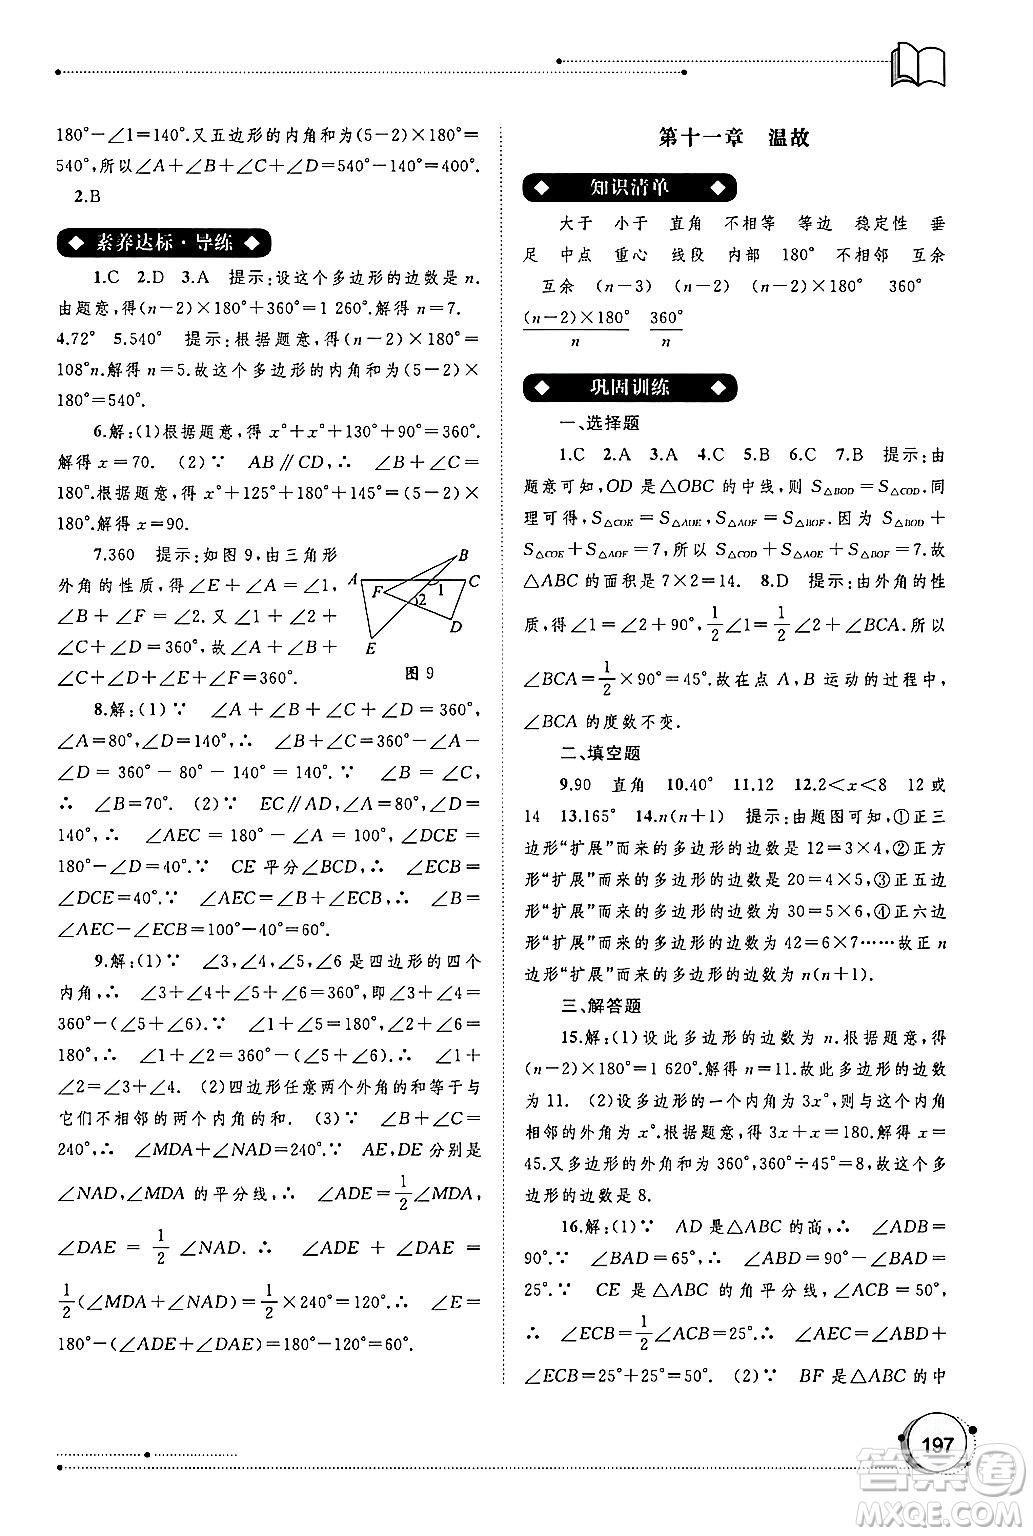 180°－∠1＝140°.又五边形的内角和为(5－2)×180°＝
540°,所以∠A＋∠B＋∠C＋∠D＝540°－140°＝400°.
2.B
素养达标·导练
1.C 2.D 3.A 提示:设这个多边形的边数是n.
由题意,得(n－2)×180°＋360°＝1 260°.解得n＝7.
4.72° 5.540° 提示:根据题意,得(n－2)×180°＝
108°n.解得n＝5.故这个多边形的内角和为(5－2)×
180°＝540°.
6.解:(1)根据题意,得x°＋x°＋130°＋90°＝360°.
解得x＝70. (2)∵ AB∥CD,∴ ∠B＝180°－60°＝
120°.根据题意,得x°＋125°＋180°＋145°＝(5－2)×
180°.解得x＝90.
7.360 提示:如图9,由三角形
外角的性质,得∠E＋∠A＝∠1,
∠B＋∠F＝∠2.又∠1＋∠2＋
∠C＋∠D＝360°,故∠A＋∠B＋
∠C＋∠D＋∠E＋∠F＝360°.
A B C D E F 1 2
图9
8.解:(1)∵ ∠A＋∠B＋∠BCD＋∠D＝360°,
∠A＝80°,∠D＝140°,∴ ∠B＋∠BCD＝360°－∠A－
∠D＝360°－80°－140°＝140°.∵ ∠B＝∠BCD,
∴ ∠B＝70°. (2)∵ EC∥AD,∠BCD＋∠B＝
140°,∴ ∠AEC＝180°－∠A＝100°,∠DCE＝
180°－∠D＝40°.∵ CE平分∠BCD,∴ ∠ECB＝
∠DCE＝40°.∵ ∠AEC＝∠B＋∠ECB,∴ ∠B＝
∠AEC－∠ECB＝100°－40°＝60°.
9.解:(1)∵ ∠3,∠4,∠5,∠6是四边形的四个
内角,∴ ∠3＋∠4＋∠5＋∠6＝360°,即∠3＋∠4＝
360°－(∠5＋∠6).∵ ∠1＋∠5＝180°,∠2＋∠6＝
180°,∴ ∠1＋∠2＝360°－(∠5＋∠6).∴ ∠1＋
∠2＝∠3＋∠4. (2)四边形任意两个外角的和等于与
它们不相邻的两个内角的和. (3)∵ ∠B＋∠C＝
240°,∴ ∠MDA＋∠NAD＝240°.∵ AE,DE分别是
∠NAD,∠MDA的平分线,∴ ∠ADE＝1/2∠MDA,
∠DAE＝1/2∠NAD.∴ ∠ADE＋∠DAE＝
1/2(∠MDA＋∠NAD)＝1/2×240°＝120°.∴ ∠E＝
180°－(∠ADE＋∠DAE)＝180°－120°＝60°.
第十一章 温故
知识清单
大于 小于 直角 不相等 等边 稳定性 垂
足 中点 重心 线段 内部 180° 不相邻 互余
互余 (n－3) (n－2) (n－2)×180° 360°
(n－2)×180°/n 360°/n
巩固训练
一、选择题
1.C 2.A 3.A 4.C 5.B 6.C 7.B 提示:由
题意可知,OD是△OBC的中线,则S△BOD＝S△COD.同
理可得,S△COE＝S△AOE,S△AOF＝S△BOF.因为S△BOD＋
S△COE＋S△AOF＝7,所以S△COD＋S△AOE＋S△BOF＝7.故
△ABC的面积是7×2＝14. 8.D 提示:由外角的性
质,得∠1＝∠2＋90°,1/2∠1＝1/2∠2＋∠BCA.所以
∠BCA＝1/2×90°＝45°.故在点A,B运动的过程中,
∠BCA的度数不变.
二、填空题
9.90 直角 10.40° 11.12 12.2＜x＜8 12或
14 13.165° 14.n(n＋1) 提示:由题图可知,①正三
边形“扩展”而来的多边形的边数是12＝3×4,②正方
形“扩展”而来的多边形的边数是20＝4×5,③正五边
形“扩展”而来的多边形的边数为30＝5×6,④正六边
形“扩展”而来的多边形的边数为42＝6×7……故正n
边形“扩展”而来的多边形的边数为n(n＋1).
三、解答题
15.解:(1)设此多边形的边数为n.根据题意,得
(n－2)×180°＝1 620°.解得n＝11.故此多边形的边数
为11. (2)设多边形的一个内角为3x°,则与这个内角
相邻的外角为x°.根据题意,得3x＋x＝180.解得x＝
45.又多边形的外角和为360°,360°÷45°＝8,故这个多
边形的边数是8.
16.解:(1)∵ AD是△ABC的高,∴ ∠ADB＝
90°.∵ ∠BAD＝65°,∴ ∠ABD＝90°－∠BAD＝
25°.∵ CE是△ABC的角平分线,∠ACB＝50°,
∴ ∠ECB＝1/2∠ACB＝25°.∴ ∠AEC＝∠ABD＋
∠ECB＝25°＋25°＝50°. (2)∵ BF是△ABC的中
197
答案圈
MXQE.COM